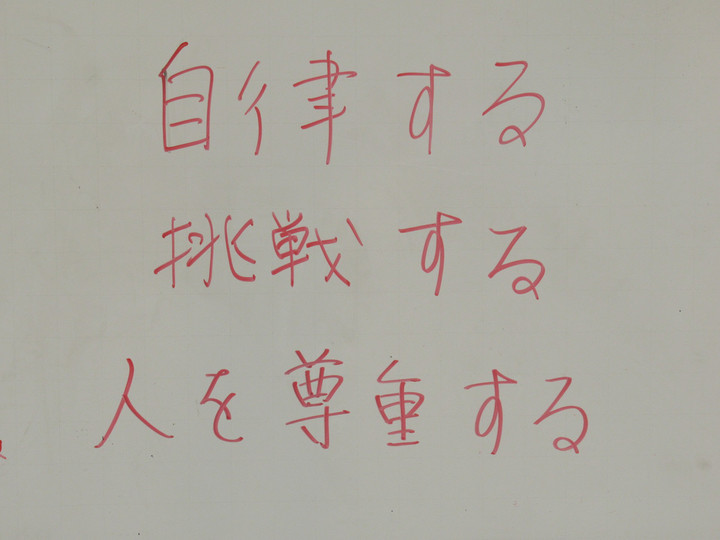 自律する
挑戦する
人を尊重する